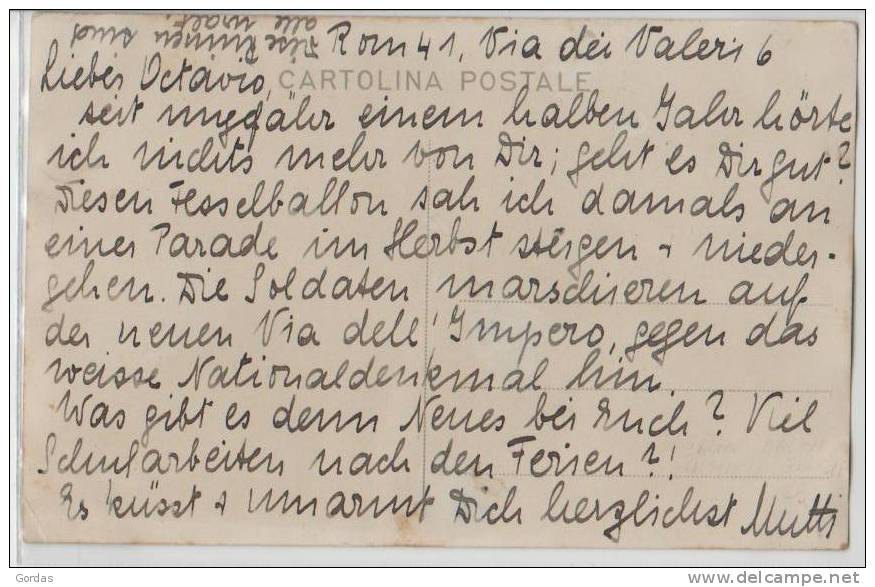 Diese Ruinen sind
alle uralt.
Rom 41, Via dei Valeri 6
Liebes Octavio,
CARTOLINA POSTALE
seit ungefähr einem halben Jahr hörte
ich nichts mehr von Dir; geht es Dir gut?
Diesen Fesselballon sah ich damals an
einer Parade im Herbst steigen + nieder-
gehen. Die Soldaten marschieren auf
der neuen Via dell' Impero, gegen das
weisse Nationaldenkmal hin.
Was gibt es denn Neues bei Euch? Viel
Schularbeiten nach den Ferien?!
Es küsst + umarmt Dich herzlichst Mutti
Gordas
www.delcampe.net